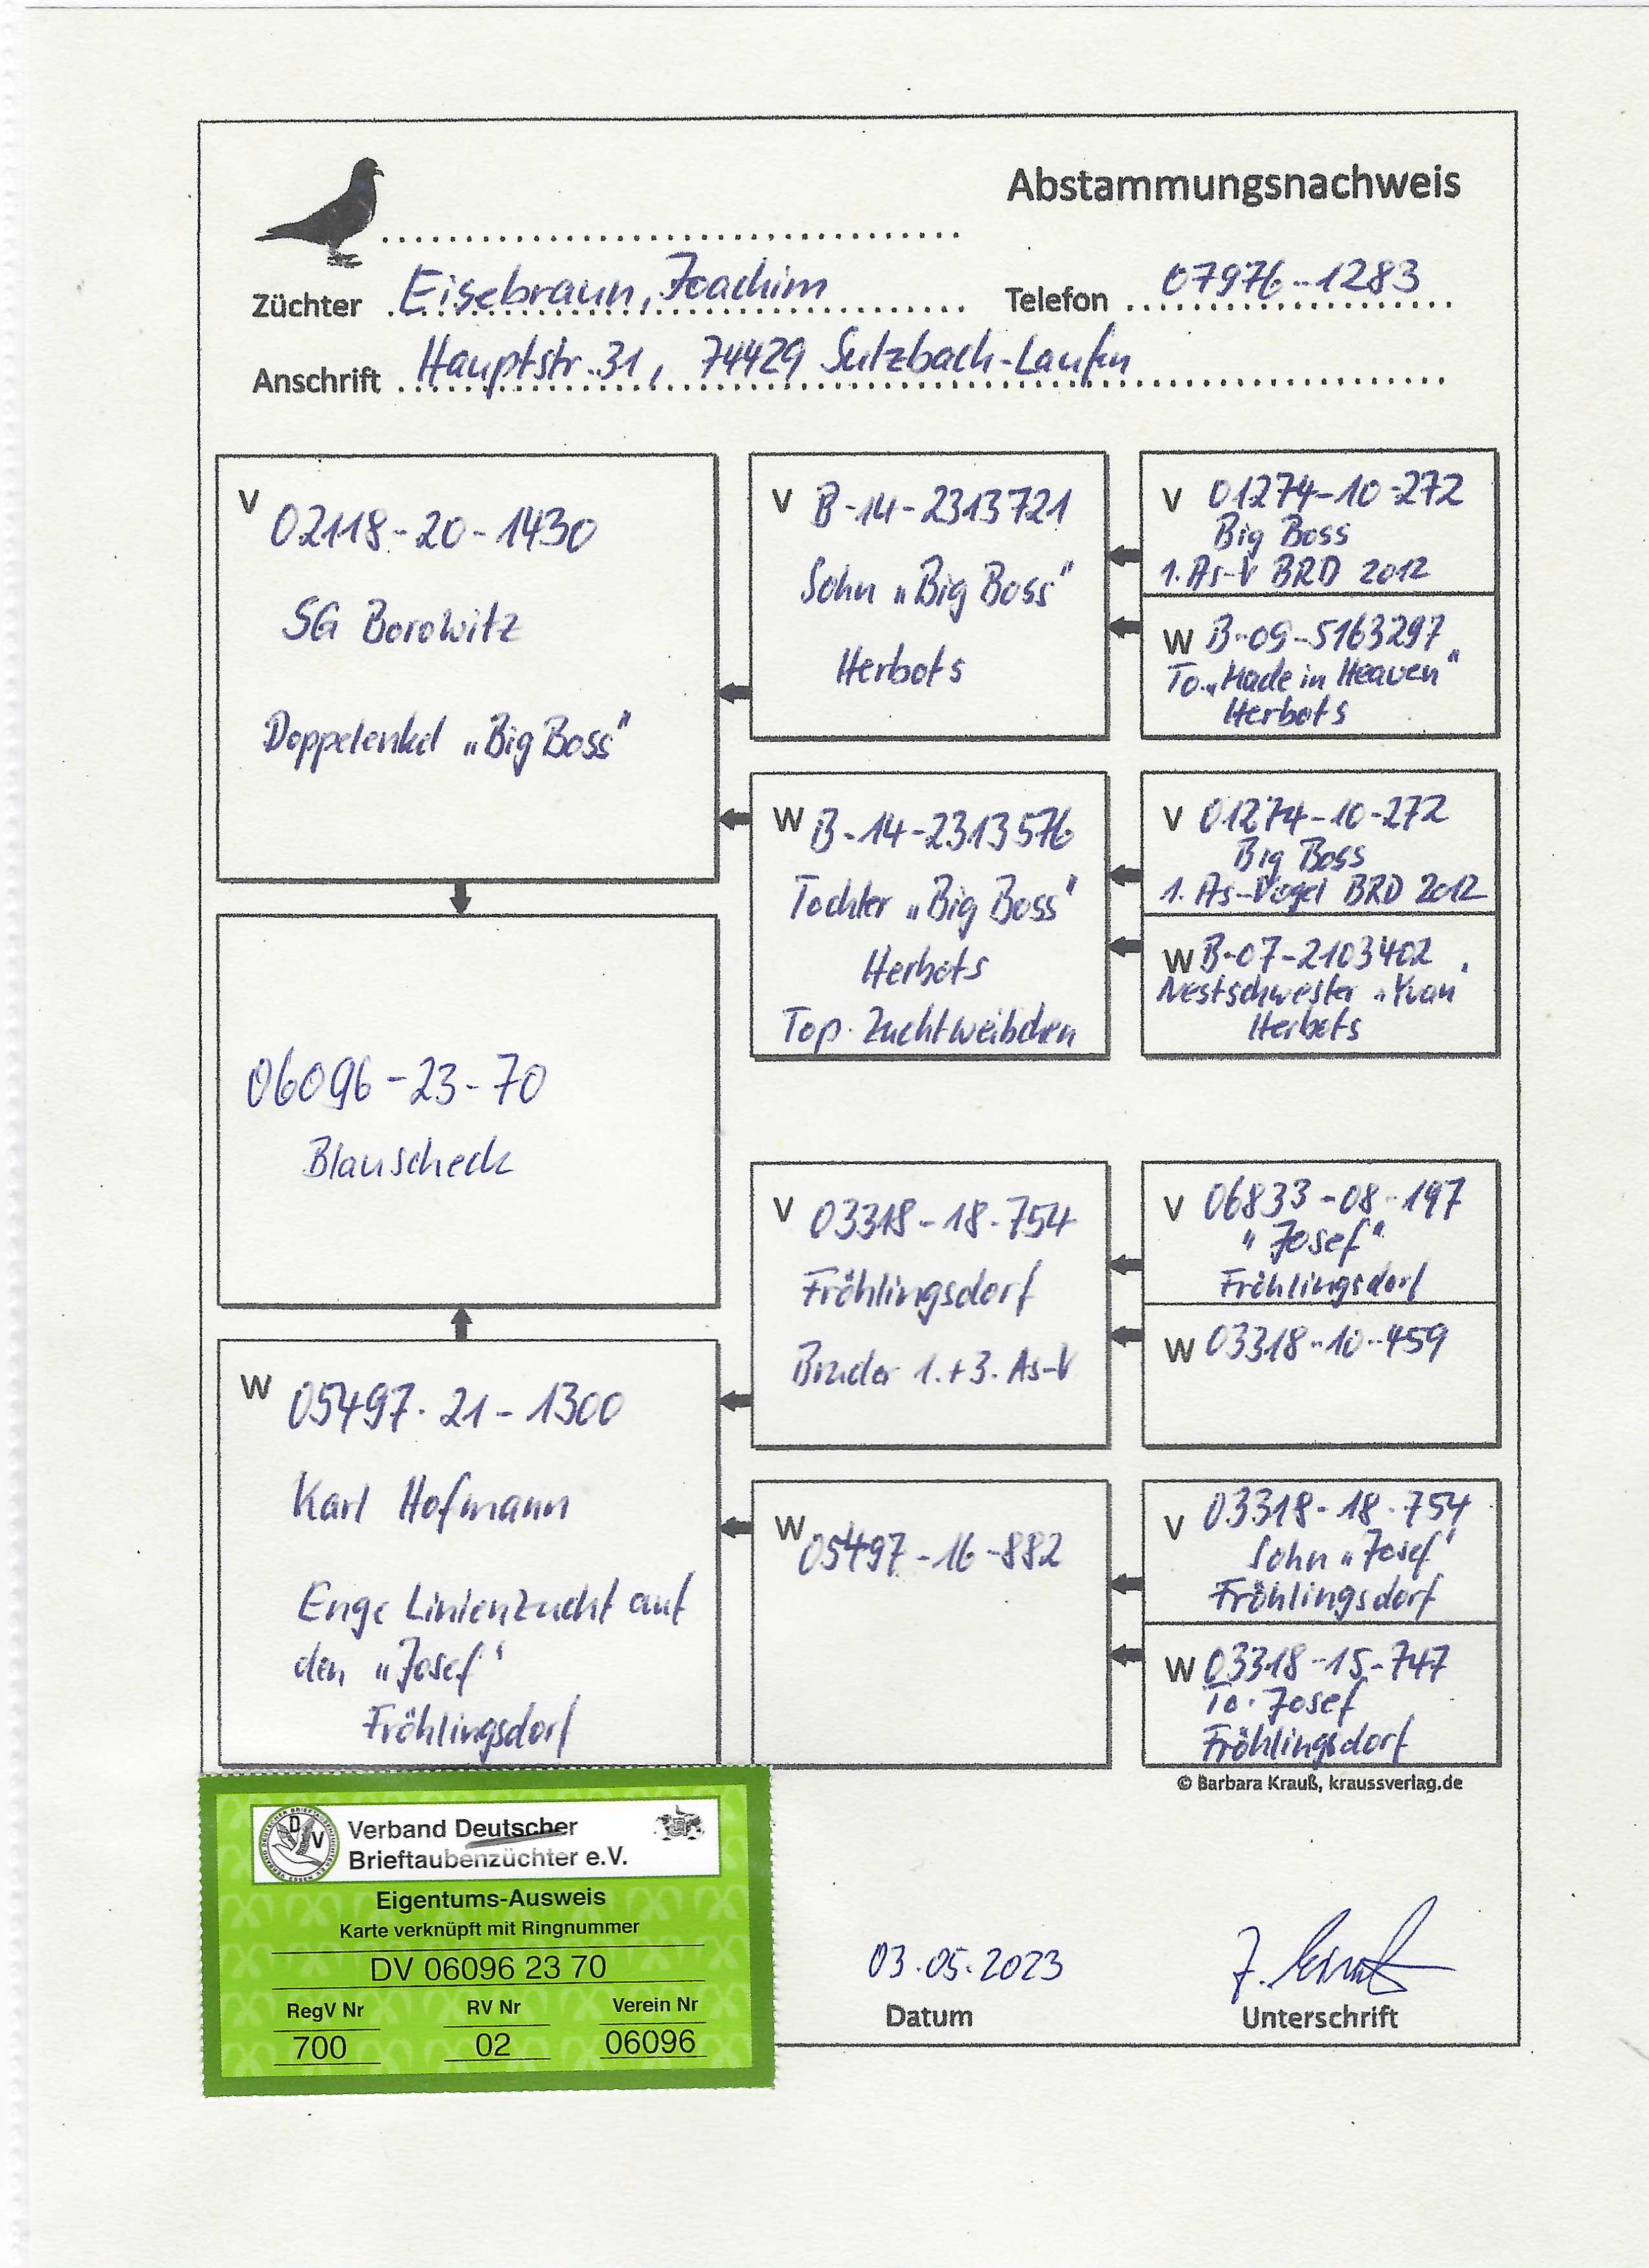 Abstammungsnachweis
Züchter Eisebraun, Joachim Telefon 07976-1283
Anschrift Hauptstr. 31, 74429 Sulzbach-Laufen
V 02118-20-1430
SG Borowitz
Doppelenkel „Big Boss"
V B-14-2313721
Sohn „Big Boss"
Herbots
V 01274-10-272
Big Boss
1. As-V BRD 2012
W B-09-5163297
To. „Made in Heaven"
Herbots
W B-14-2313576
Tochter „Big Boss"
Herbots
Top Zuchtweibchen
V 01274-10-272
Big Boss
1. As-Vogel BRD 2012
W B-07-2103402
Nestschwester „Yvan"
Herbots
06096-23-70
Blauscheck
V 03318-18-754
Fröhlingsdorf
Bruder 1.+3. As-V
V 06833-08-197
"Josef"
Fröhlingsdorf
W 03318-10-459
W 05497-21-1300
Karl Hofmann
Enge Linienzucht auf
den „Josef"
Fröhlingsdorf
W 05497-16-882
V 03318-18-754
Sohn „Josef"
Fröhlingsdorf
W 03318-15-747
To. Josef
Fröhlingsdorf
© Barbara Krauß, kraussverlag.de
Verband Deutscher
Brieftaubenzüchter e.V.
Eigentums-Ausweis
Karte verknüpft mit Ringnummer
DV 06096 23 70
RegV Nr RV Nr Verein Nr
700 02 06096
03.05.2023
Datum Unterschrift